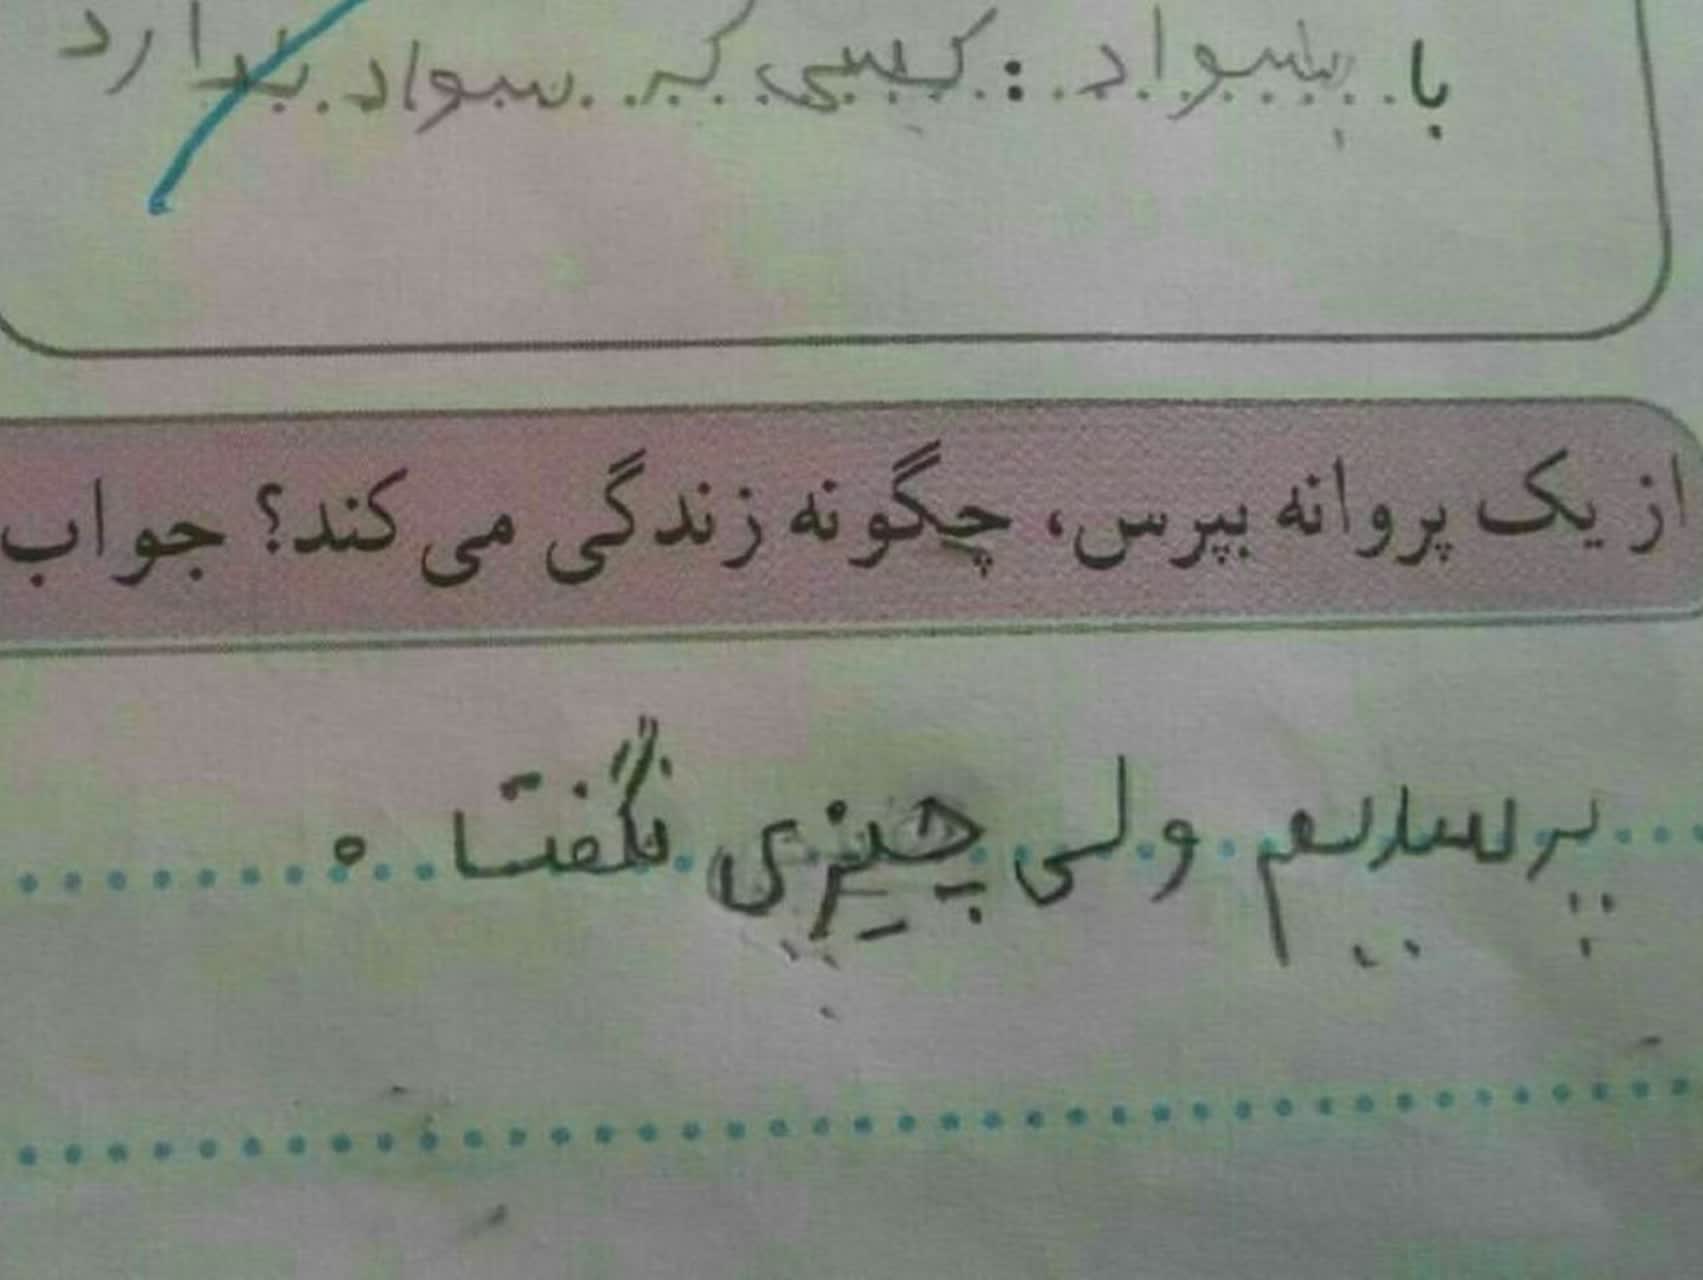 با بیسواد : کسی که سواد ندارد
از یک پروانه بپرس، چگونه زندگی می‌کند؟ جواب
پرسیدیم ولی چیزی نگفت.